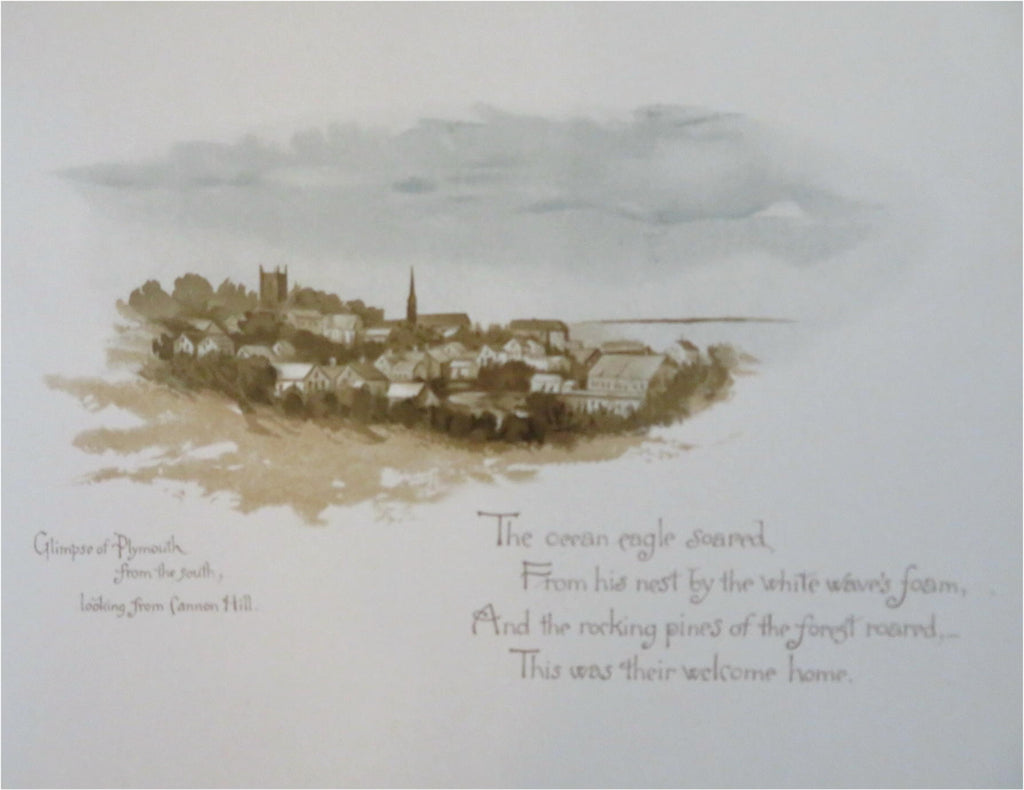 Glimpse of Plymouth
from the south,
looking from Cannon Hill.
The ocean eagle soared,
From his nest by the white wave's foam,
And the rocking pines of the forest roared,—
This was their welcome home.